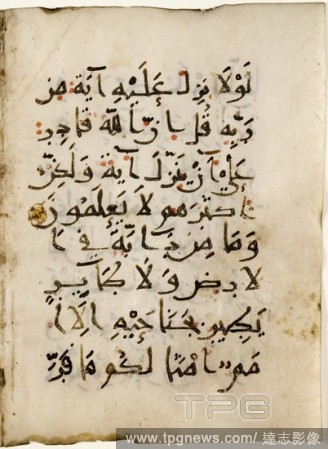 لولا نزل عليه آية من
ربه قل إن الله قادر
على أن ينزل آية ولكن
أكثرهم لا يعلمون
وما من دابة في ا
لأرض ولا طاير
يطير بجناحيه إلا أ
مم أمثالكم ما فر
TPG
www.tpgnews.com/ 達志影像